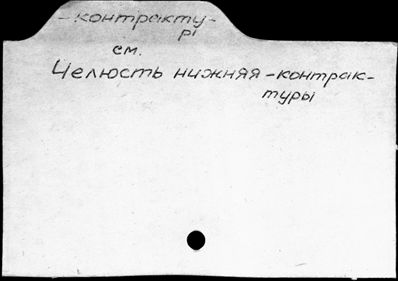 -контракту-
ры
см.
Челюсть нижняя-контрак-
туры